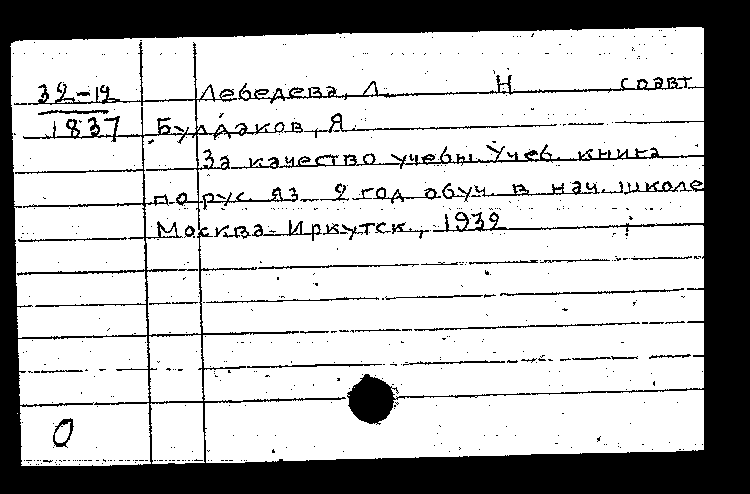 32-12 Лебедева, Л. Н соавт
1837 Булдаков, Я.
За качество учебы. Учеб. книга
по рус. яз. 2 год обуч. в нач. школе
Москва-Иркутск, 1932
0